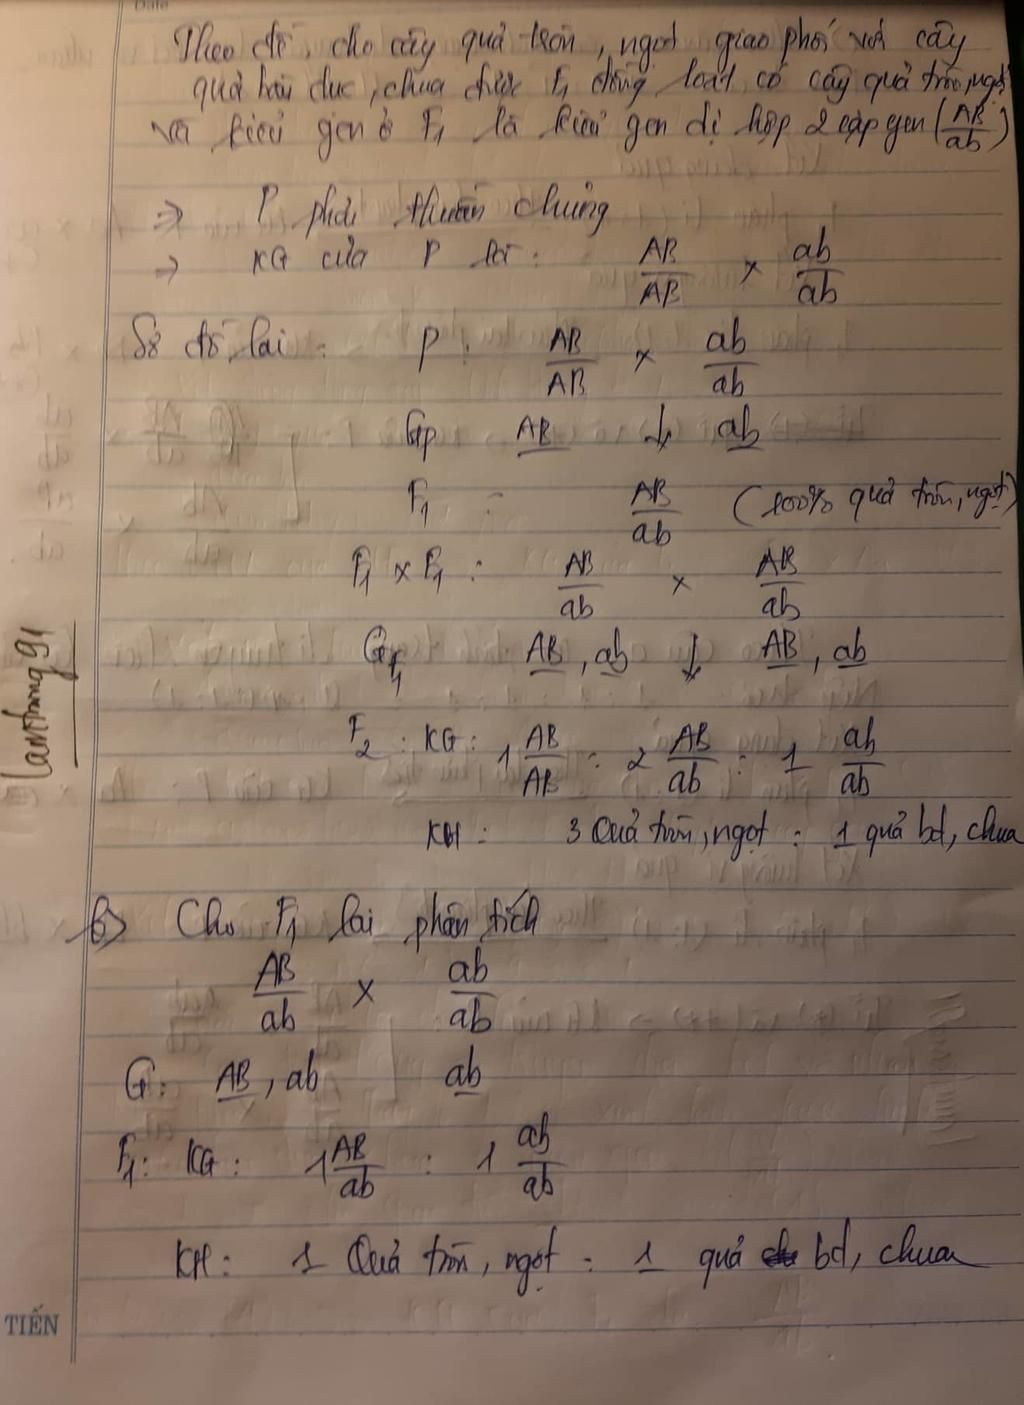 Date
Theo đề, cho cây quả tròn, ngọt giao phối với cây
quả bầu dục, chua được F1 đồng loạt có cây quả tròn, ngọt
và kiểu gen ở F1 là kiểu gen dị hợp 2 cặp gen (AB/ab)
=> P phải thuần chủng
=> KG của P là: AB/AB × ab/ab
Sơ đồ lai: P: AB/AB × ab/ab
Gp AB ↓ ab
F1 : AB/ab (100% quả tròn, ngọt)
F1 × F1 : AB/ab × AB/ab
GF1 AB, ab ↓ AB, ab
F2 : KG: 1 AB/AB : 2 AB/ab : 1 ab/ab
KH: 3 Quả tròn, ngọt : 1 quả bd, chua
b> Cho F1 lai phân tích
AB/ab × ab/ab
G: AB, ab ab
F1: KG: 1 AB/ab : 1 ab/ab
KH: 1 Quả tròn, ngọt : 1 quả bd, chua
TIẾN